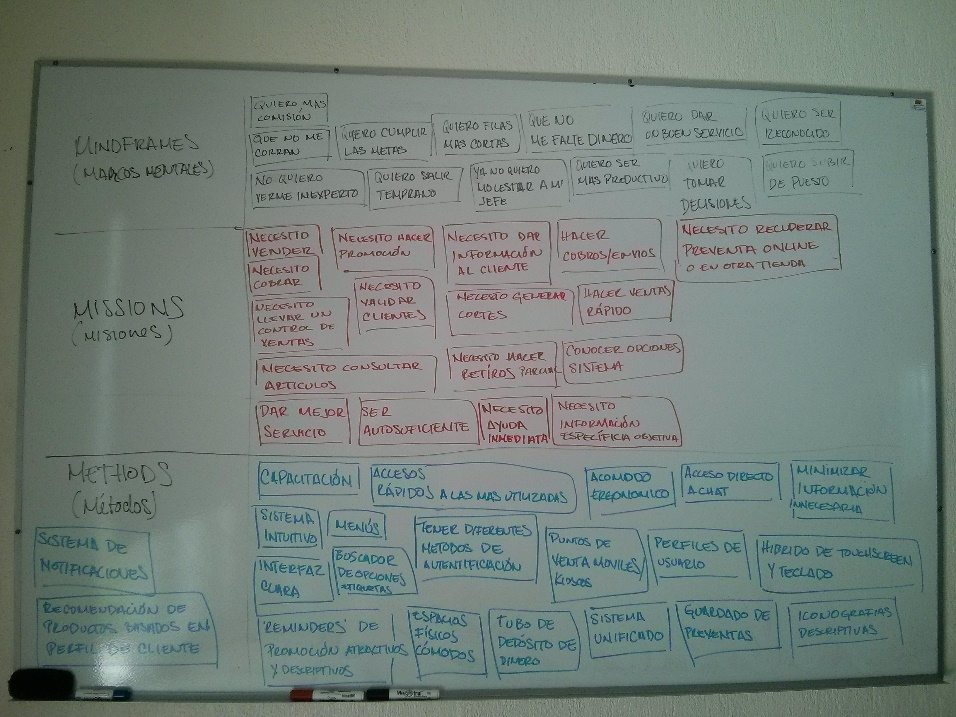 MINDFRAMES
(MARCOS MENTALES)
QUIERO MAS
COMISIÓN
QUE NO ME
CORRAN
QUIERO CUMPLIR
LAS METAS
QUIERO FILAS
MAS CORTAS
QUE NO
ME FALTE DINERO
QUIERO DAR
UN BUEN SERVICIO
QUIERO SER
RECONOCIDO
NO QUIERO
VERME INEXPERTO
QUIERO SALIR
TEMPRANO
YA NO QUIERO
MOLESTAR A MI
JEFE
QUIERO SER
MAS PRODUCTIVO
QUIERO
TOMAR
DECISIONES
QUIERO SUBIR
DE PUESTO
MISSIONS
(MISIONES)
NECESITO
VENDER
NECESITO HACER
PROMOCIÓN
NECESITO DAR
INFORMACIÓN
AL CLIENTE
HACER
COBROS/ENVIOS
NECESITO RECUPERAR
PREVENTA ONLINE
O EN OTRA TIENDA
NECESITO
COBRAR
NECESITO
VALIDAR
CLIENTES
NECESITO GENERAR
CORTES
HACER VENTAS
RÁPIDO
NECESITO
LLEVAR UN
CONTROL DE
VENTAS
NECESITO CONSULTAR
ARTICULOS
NECESITO HACER
RETIROS
CONOCER OPCIONES
SISTEMA
DAR MEJOR
SERVICIO
SER
AUTOSUFICIENTE
NECESITO
AYUDA
INMEDIATA
NECESITO
INFORMACIÓN
ESPECÍFICIA OBJETIVA
METHODS
(Métodos)
CAPACITACIÓN
ACCESOS
RÁPIDOS A LAS MAS UTILIZADAS
ACOMODO
ERGONOMICO
ACCESO DIRECTO
A CHAT
MINIMIZAR
INFORMACIÓN
INNECESARIA
SISTEMA
INTUITIVO
MENÚS
TENER DIFERENTES
METODOS DE
AUTENTIFICACIÓN
PUNTOS DE
VENTA MOVILES/
KIOSCOS
PERFILES DE
USUARIO
HIBRIDO DE TOUCHSCREEN
Y TECLADO
SISTEMA DE
NOTIFICACIONES
INTERFAZ
CLARA
BUSCADOR
DE OPCIONES
ETIQUETAS
RECOMENDACIÓN DE
PRODUCTOS BASADOS EN
PERFIL DE CLIENTE
'REMINDERS' DE
PROMOCIÓN ATRACTIVOS
Y DESCRIPTIVOS
ESPACIOS
FÍSICOS
CÓMODOS
TUBO DE
DEPÓSITO DE
DINERO
SISTEMA
UNIFICADO
GUARDADO DE
PREVENTAS
ICONOGRAFIAS
DESCRIPTIVAS